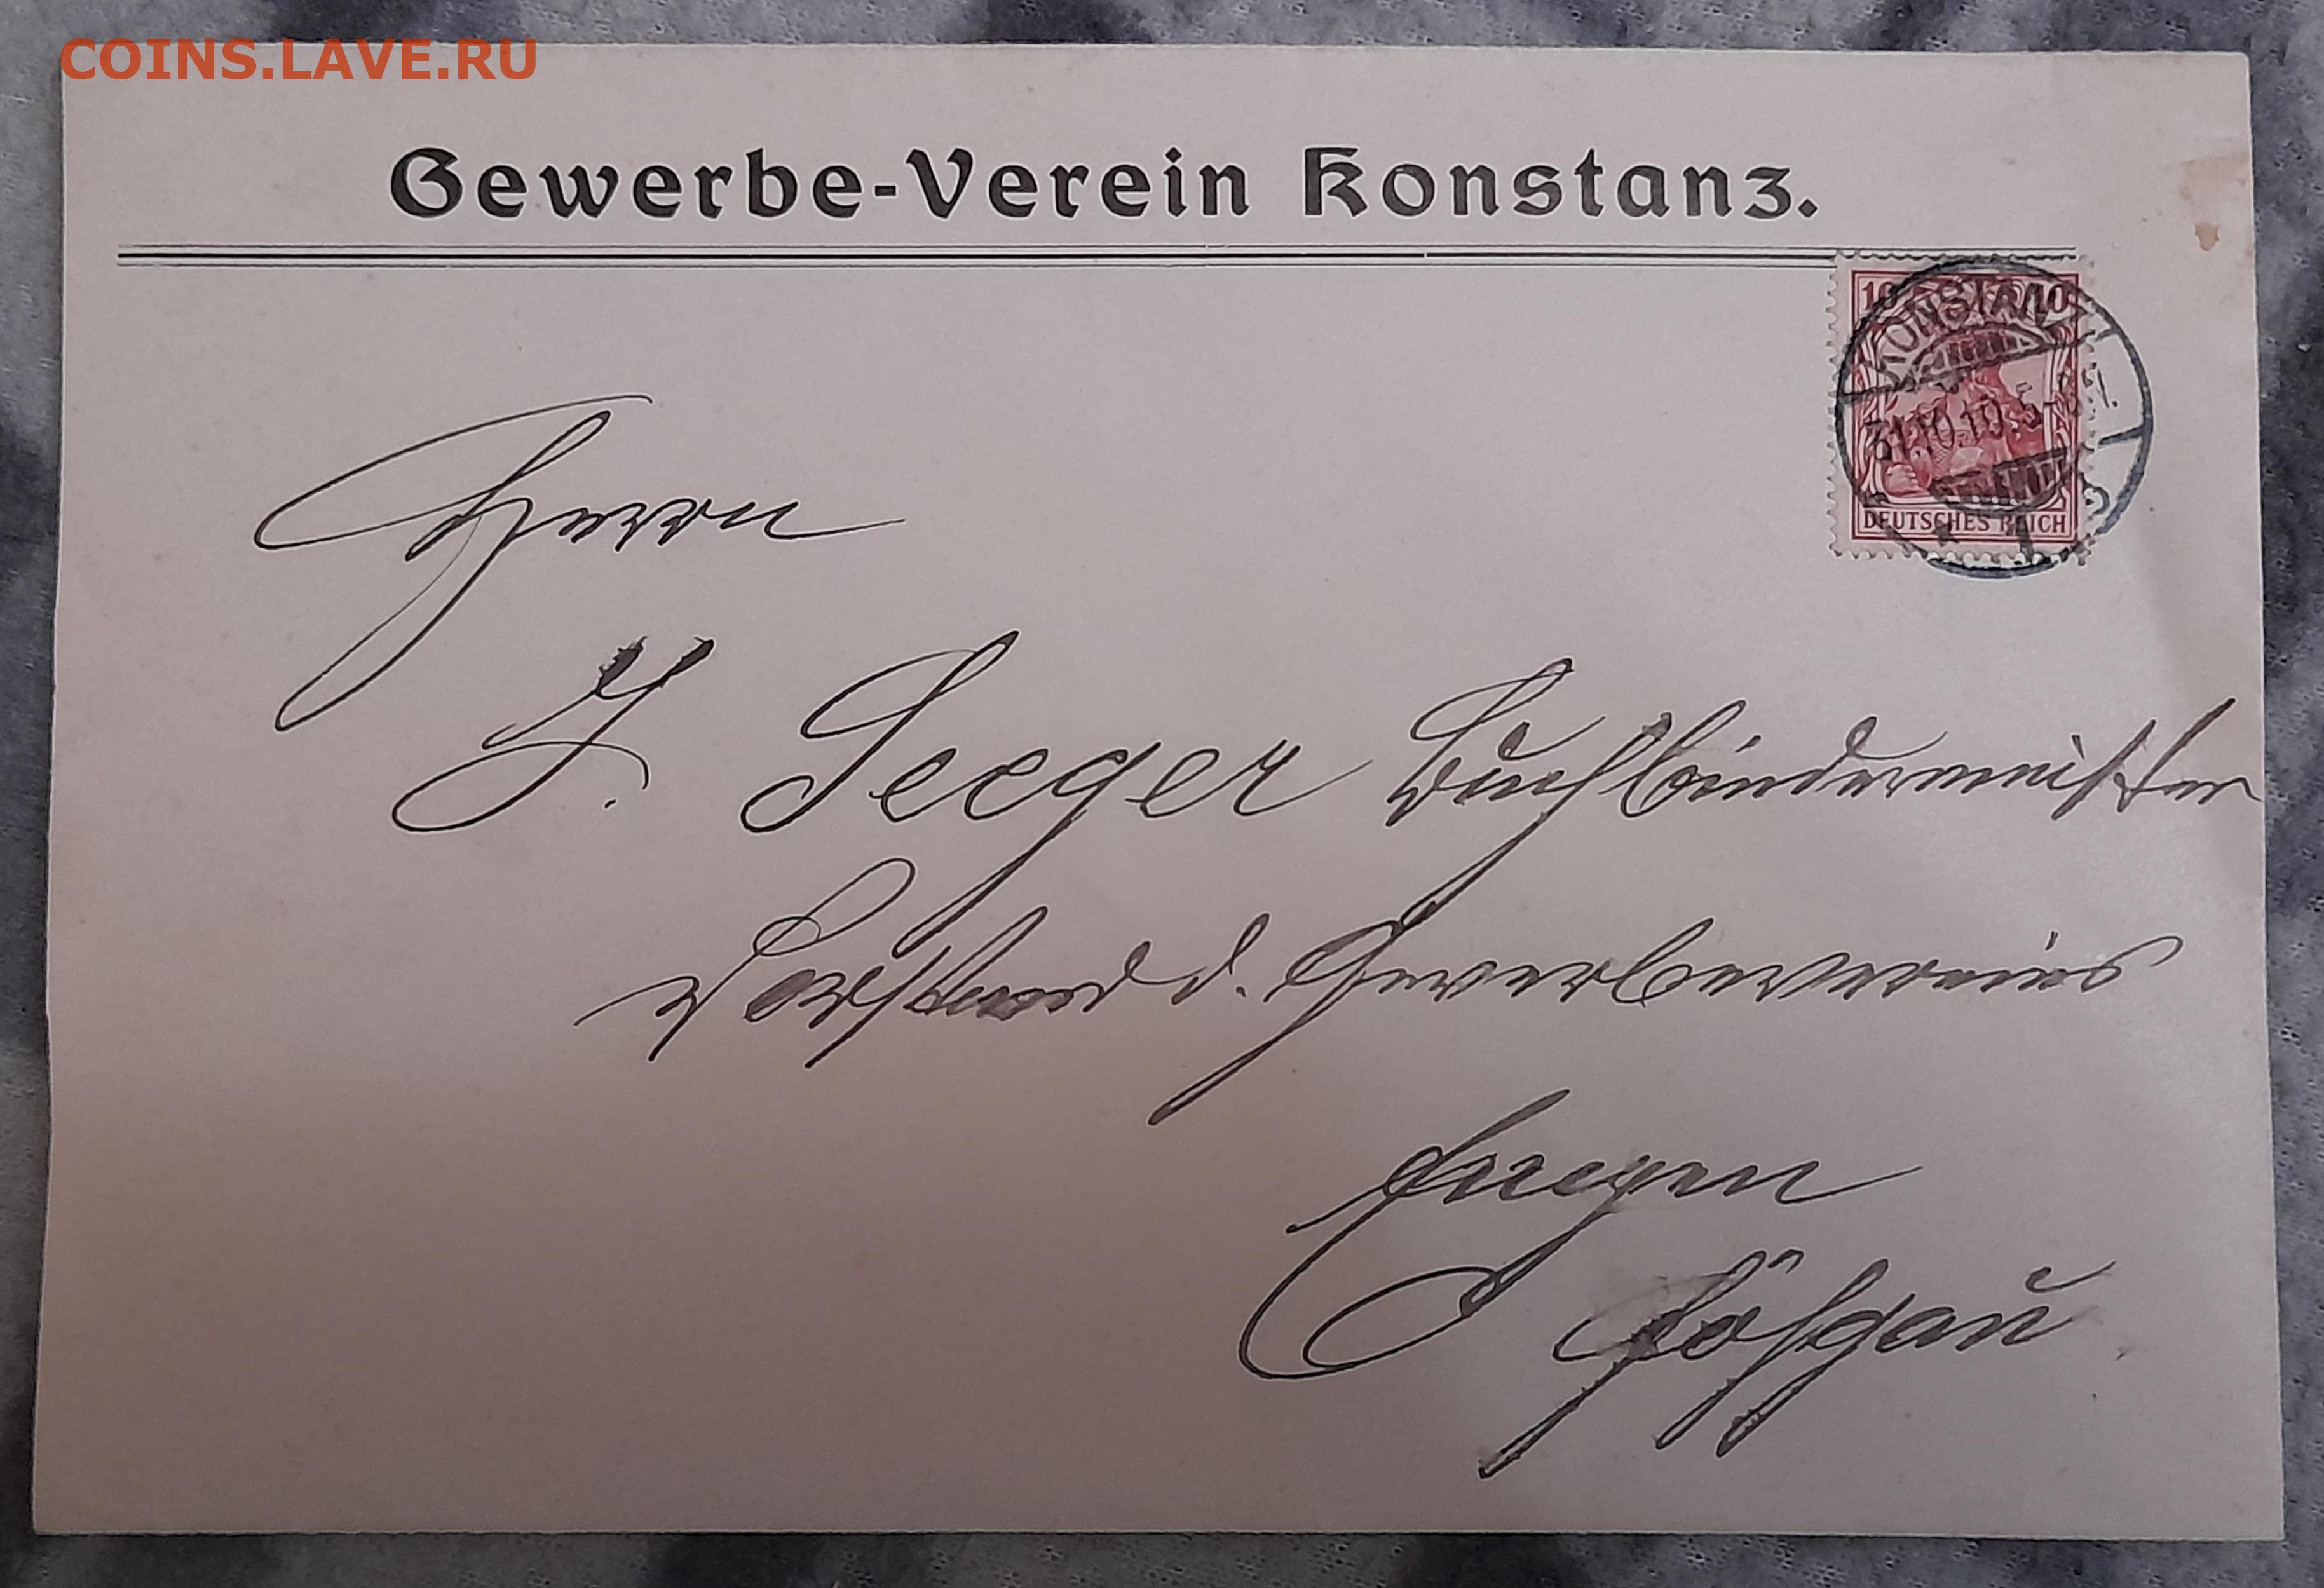 COINS.LAVE.RU
Gewerbe-Verein Konstanz.
10 10
KONSTANZ
31.10.10.5-
* 1
DEUTSCHES REICH
Herrn
J. Seeger Buchbindermeister
Vorstand d. Gewerbevereins
Engen
Höhgau